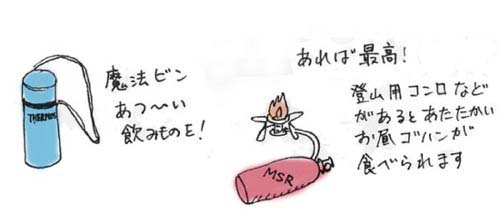 魔法ビン
あつ〜い
飲みものを!
THERMOS
あれば最高!
登山用コンロなど
があるとあたたかい
お昼ゴハンが
食べられます
MSR